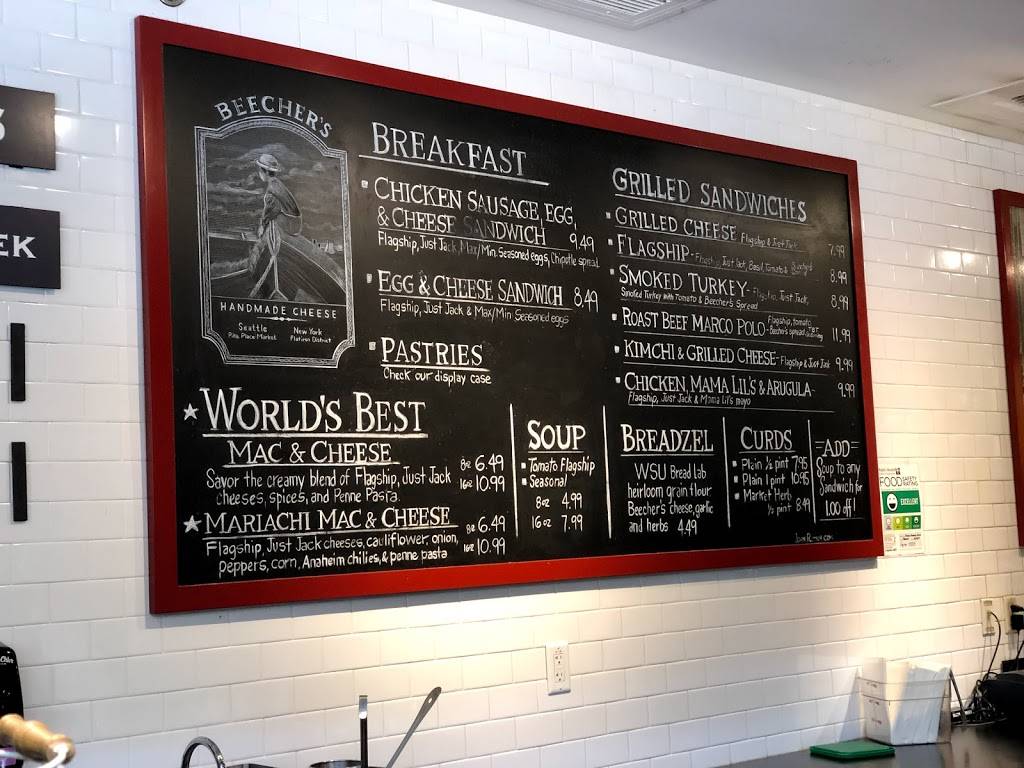 EEK
BEECHER'S
HANDMADE CHEESE
Seattle
Pike Place Market
New York
Flatiron District
BREAKFAST
CHICKEN SAUSAGE, EGG,
& CHEESE SANDWICH 9.49
Flagship, Just Jack, Max/Min. Seasoned eggs, Chipotle spread
EGG & CHEESE SANDWICH 8.49
Flagship, Just Jack & Max/Min Seasoned eggs
PASTRIES
Check our display case
GRILLED SANDWICHES
GRILLED CHEESE Flagship & Just Jack 7.99
FLAGSHIP - Flagship, Just Jack, Basil, Tomato & 8.99
SMOKED TURKEY - Flagship, Just Jack,
Smoked Turkey with Tomato & Beecher's Spread 8.99
ROAST BEEF MARCO POLO - Flagship, tomato,
Beecher's spread 11.99
KIMCHI & GRILLED CHEESE - Flagship & Just Jack 9.99
CHICKEN, MAMA LIL'S & ARUGULA - 9.99
Flagship, Just Jack & Mama Lil's mayo
★ WORLD'S BEST
MAC & CHEESE
Savor the creamy blend of Flagship, Just Jack
cheeses, spices, and Penne Pasta.
8oz 6.49
16oz 10.99
★ MARIACHI MAC & CHEESE
Flagship, Just Jack cheeses, cauliflower, onion,
peppers, corn, Anaheim chilies, & penne pasta
8oz 6.49
16oz 10.99
SOUP
Tomato Flagship
Seasonal
8oz 4.99
16oz 7.99
BREADZEL
WSU Bread lab
heirloom grain flour
Beecher's cheese, garlic
and herbs 4.49
CURDS
Plain ½ pint 7.95
Plain 1 pint 10.95
Market Herb
½ pint 8.49
ADD
Soup to any
Sandwich for
1.00 off!
FOOD SAFETY
RATING
EXCELLENT